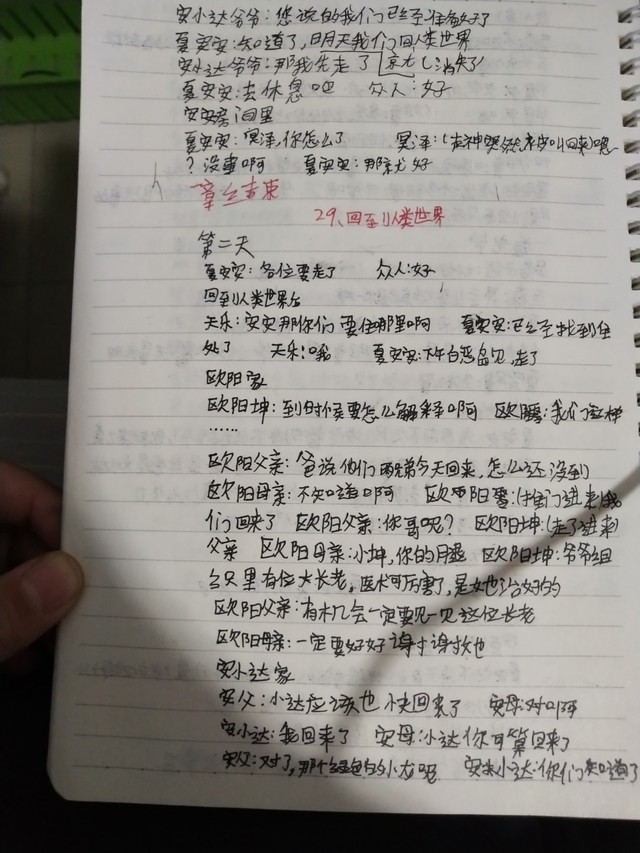 安小达爷爷:您说的我们已经准备好了
夏安安:知道了,明天我们回人类世界
安小达爷爷:那我先走了(亮光消失)
夏安安:去休息吧 众人:好
安安房间里
夏安安:冥泽,你怎么了 冥泽:(走神突然被叫回来)嗯
?没事啊 夏安安:那就好
章结束
29、回到人类世界
第二天
夏安安:各位要走了 众人:好
回到人类世界后
天乐:安安那你们要住哪里啊 夏安安:已经找到住
处了 天乐:哦 夏安安:下午老地见,走了
欧阳家
欧阳坤:到时候要怎么解释啊 欧阳:我们这样
……
欧阳父亲:爸说他们两兄弟今天回来,怎么还没到
欧阳母亲:不知道啊 欧阳:(推门进来)我
们回来了 欧阳父亲:你哥呢? 欧阳坤:(走了进来)
父亲 欧阳母亲:小坤,你的月退 欧阳坤:爷爷组
织里有位大长老,医术可厉害了,是她治好的
欧阳父亲:有机会一定要见一见这位长老
欧阳母亲:一定要好好谢谢她
安小达家
安父:小达应该也快回来了 安母:对啊
安小达:我回来了 安母:小达你可算回来了
安父:对了,那个绿色的小龙呢 安小达:你们知道了